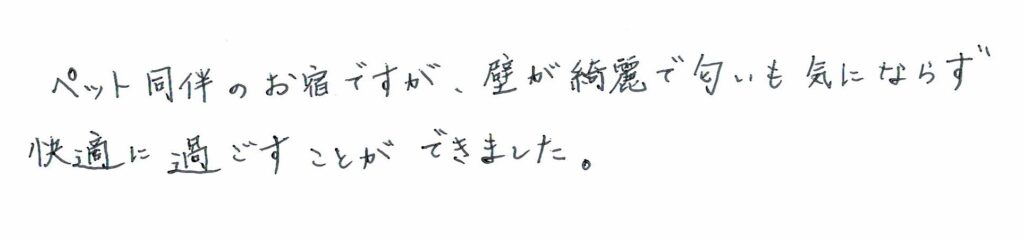 ペット同伴のお宿ですが、壁が綺麗で匂いも気にならず
快適に過ごすことができました。